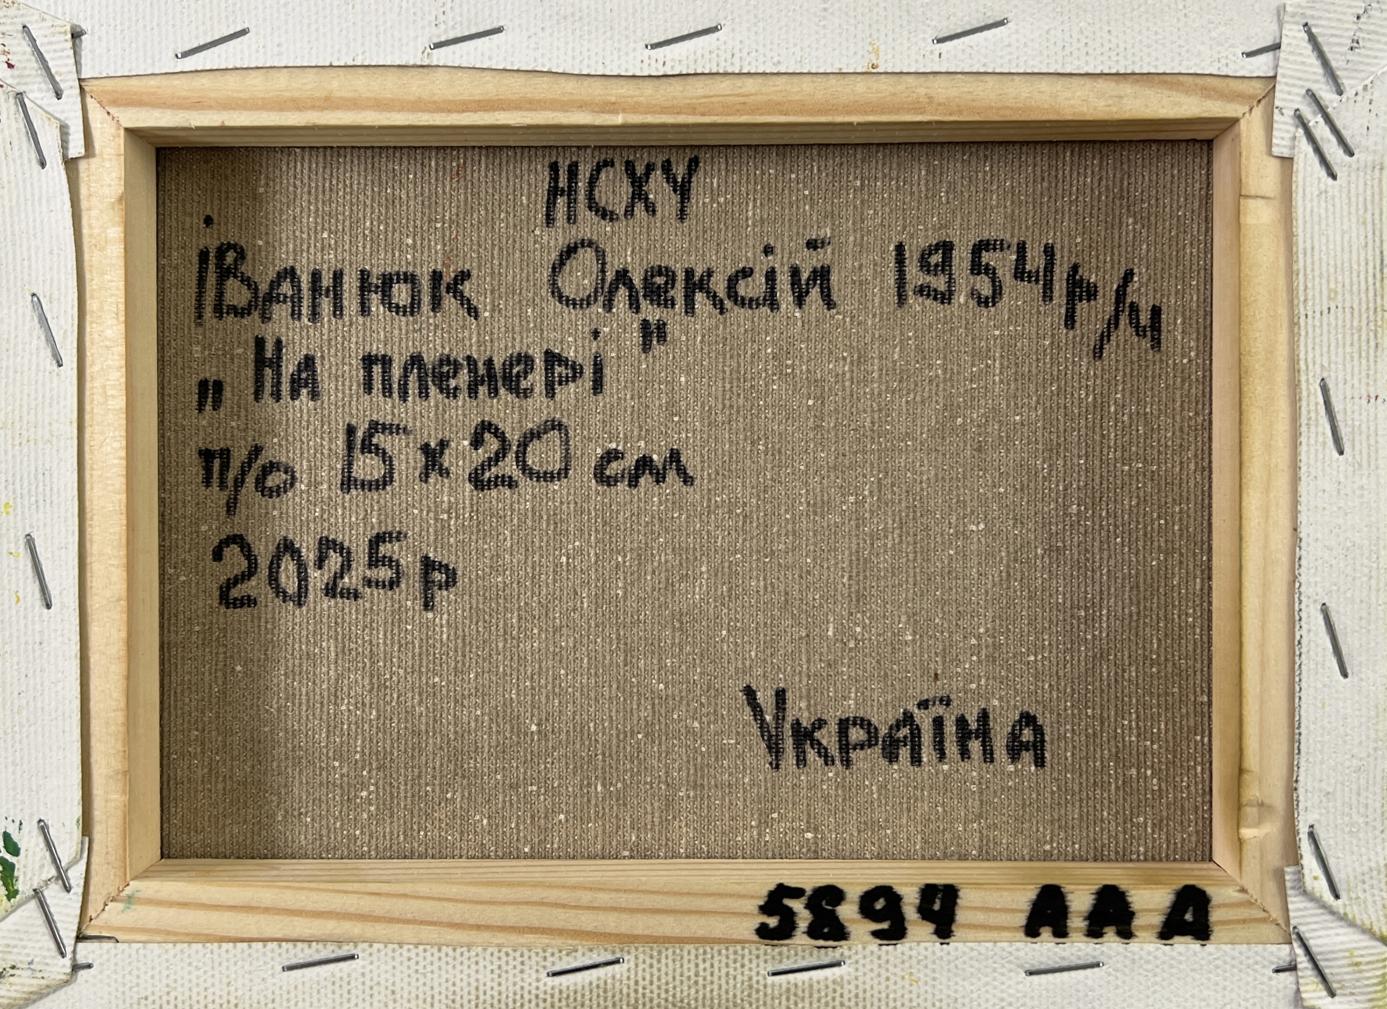 НСХУ
Іванюк Олексій 1954р/н
„На пленері"
п/о 15х20 см
2025р
Україна
5894 ААА